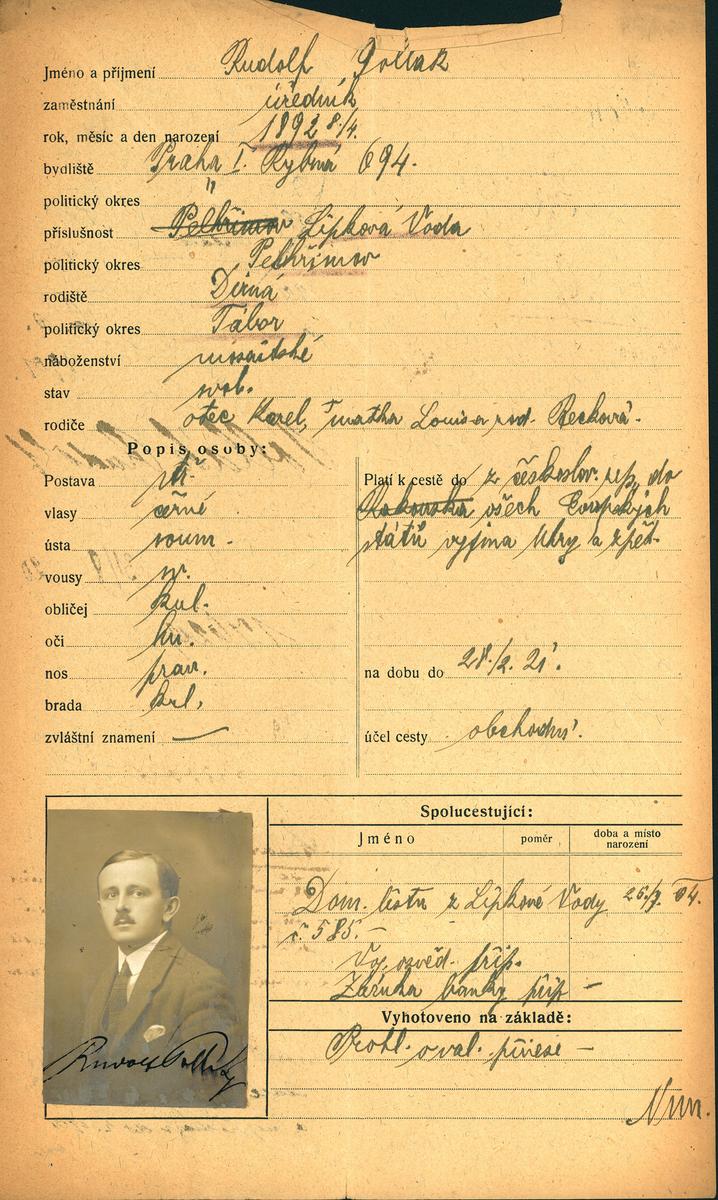 Jméno a příjmení Rudolf Pollak
zaměstnání úředník
rok, měsíc a den narození 1892 8./4.
bydliště Praha I. Rybná 694.
politický okres "
příslušnost Pelhřimov Lípková Voda
politický okres Pelhřimov
rodiště Dírná
politický okres Tábor
náboženství mosaitské
stav svob.
rodiče otec Karel, † matka Louisa rod. Becková.
Popis osoby:
Postava stř.
vlasy černé
ústa soum.
vousy
obličej kul.
oči hn.
nos prav.
brada kul.
zvláštní znamení —
Platí k cestě do z českoslov. rep. do
Rakouska všech Evropských
států vyjma Uhry a zpět.
na dobu do 28./2. 21.
účel cesty obchodní.
Spolucestující:
Jméno poměr doba a místo narození
Dom. listu z Lípkové Vody 04.
č. 585. —
osvěd. přip.
Záruka banky přip —
Vyhotoveno na základě:
Prohl. o val. přinese —
Rudolf Pollak